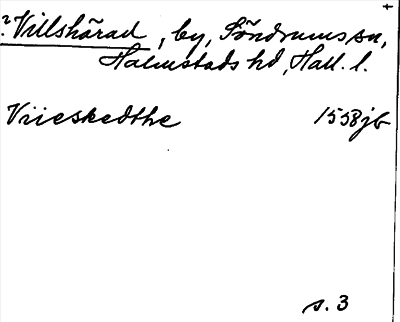 ?Villshärad, by, Söndrums sn,
Halmstads hd, Hall. l.
Vriieskedthe 1558 jb
s. 3